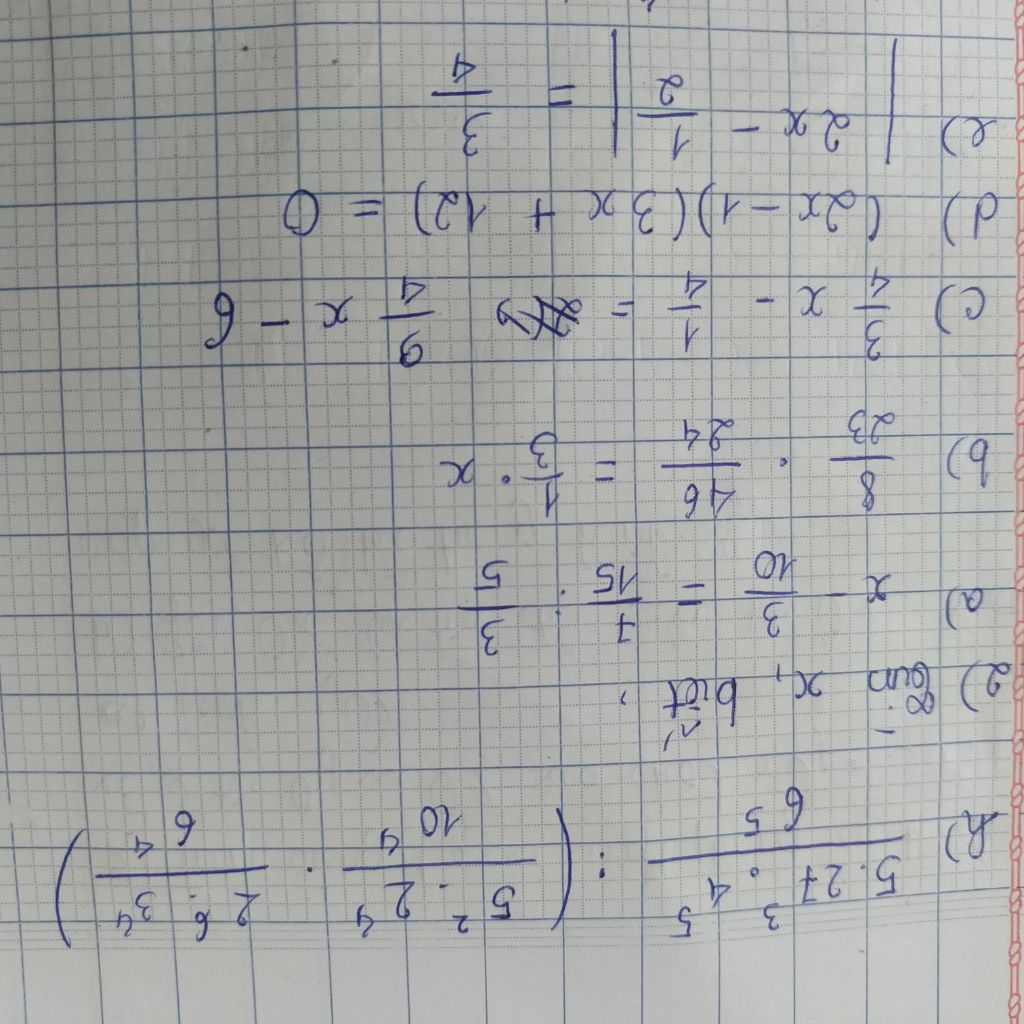 h) \frac{5 \cdot 27^3 \cdot 4^5}{6^5} : \left( \frac{5^2 \cdot 2^4}{10^4} \cdot \frac{2^6 \cdot 3^4}{6^4} \right)
2) Tìm x, biết :
a) x - \frac{3}{10} = \frac{7}{15} : \frac{3}{5}
b) \frac{8}{23} \cdot \frac{46}{24} = \frac{1}{3} \cdot x
c) \frac{3}{4} x - \frac{1}{4} = \frac{9}{4} x - 6
d) (2x - 1)(3x + 12) = 0
e) \left| 2x - \frac{1}{2} \right| = \frac{3}{4}